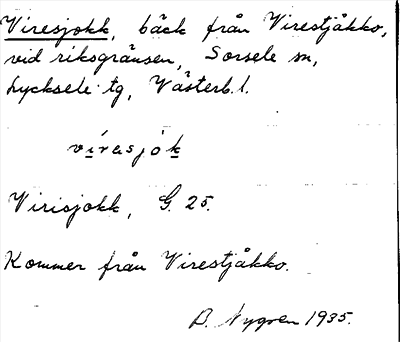 Viresjokk, bäck från Virestjåkko,
vid riksgränsen, Sorsele sn,
Lycksele tg, Västerb. l.
vírasjòk
Virisjokk, G. 25.
Kommer från Virestjåkko.
B. Nygren 1935.